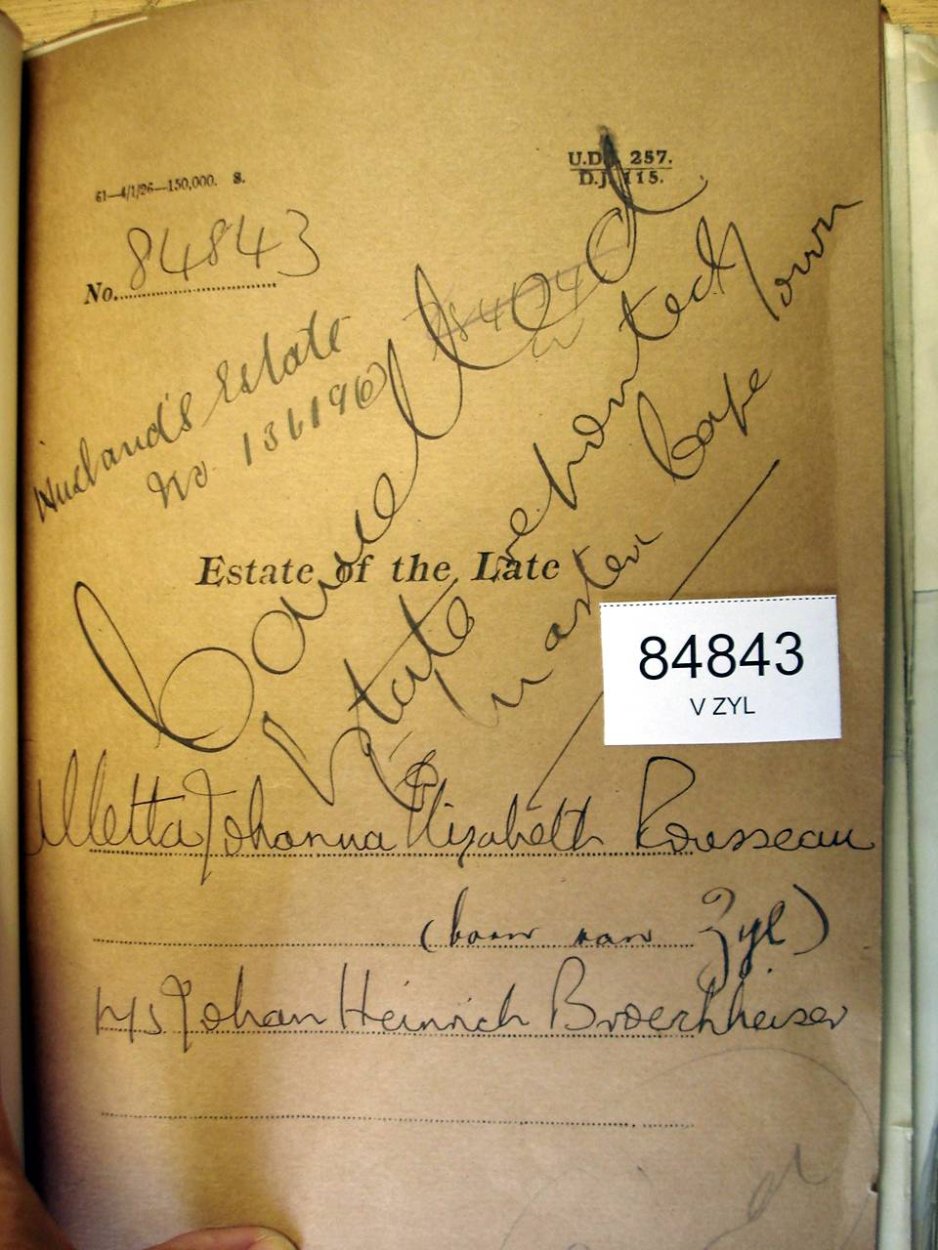 61—4/1/26—150,000. S.
U.D.J. 257.
D.J. 115.
No. 84843
Husband's Estate
No 136196
Cancelled
Estate reported
to Master Cape Town
Estate of the Late
84843
V ZYL
Alletta Johanna Elizabeth Rousseau
(born van Zyl)
h/s Johan Heinrich Broeckheiser